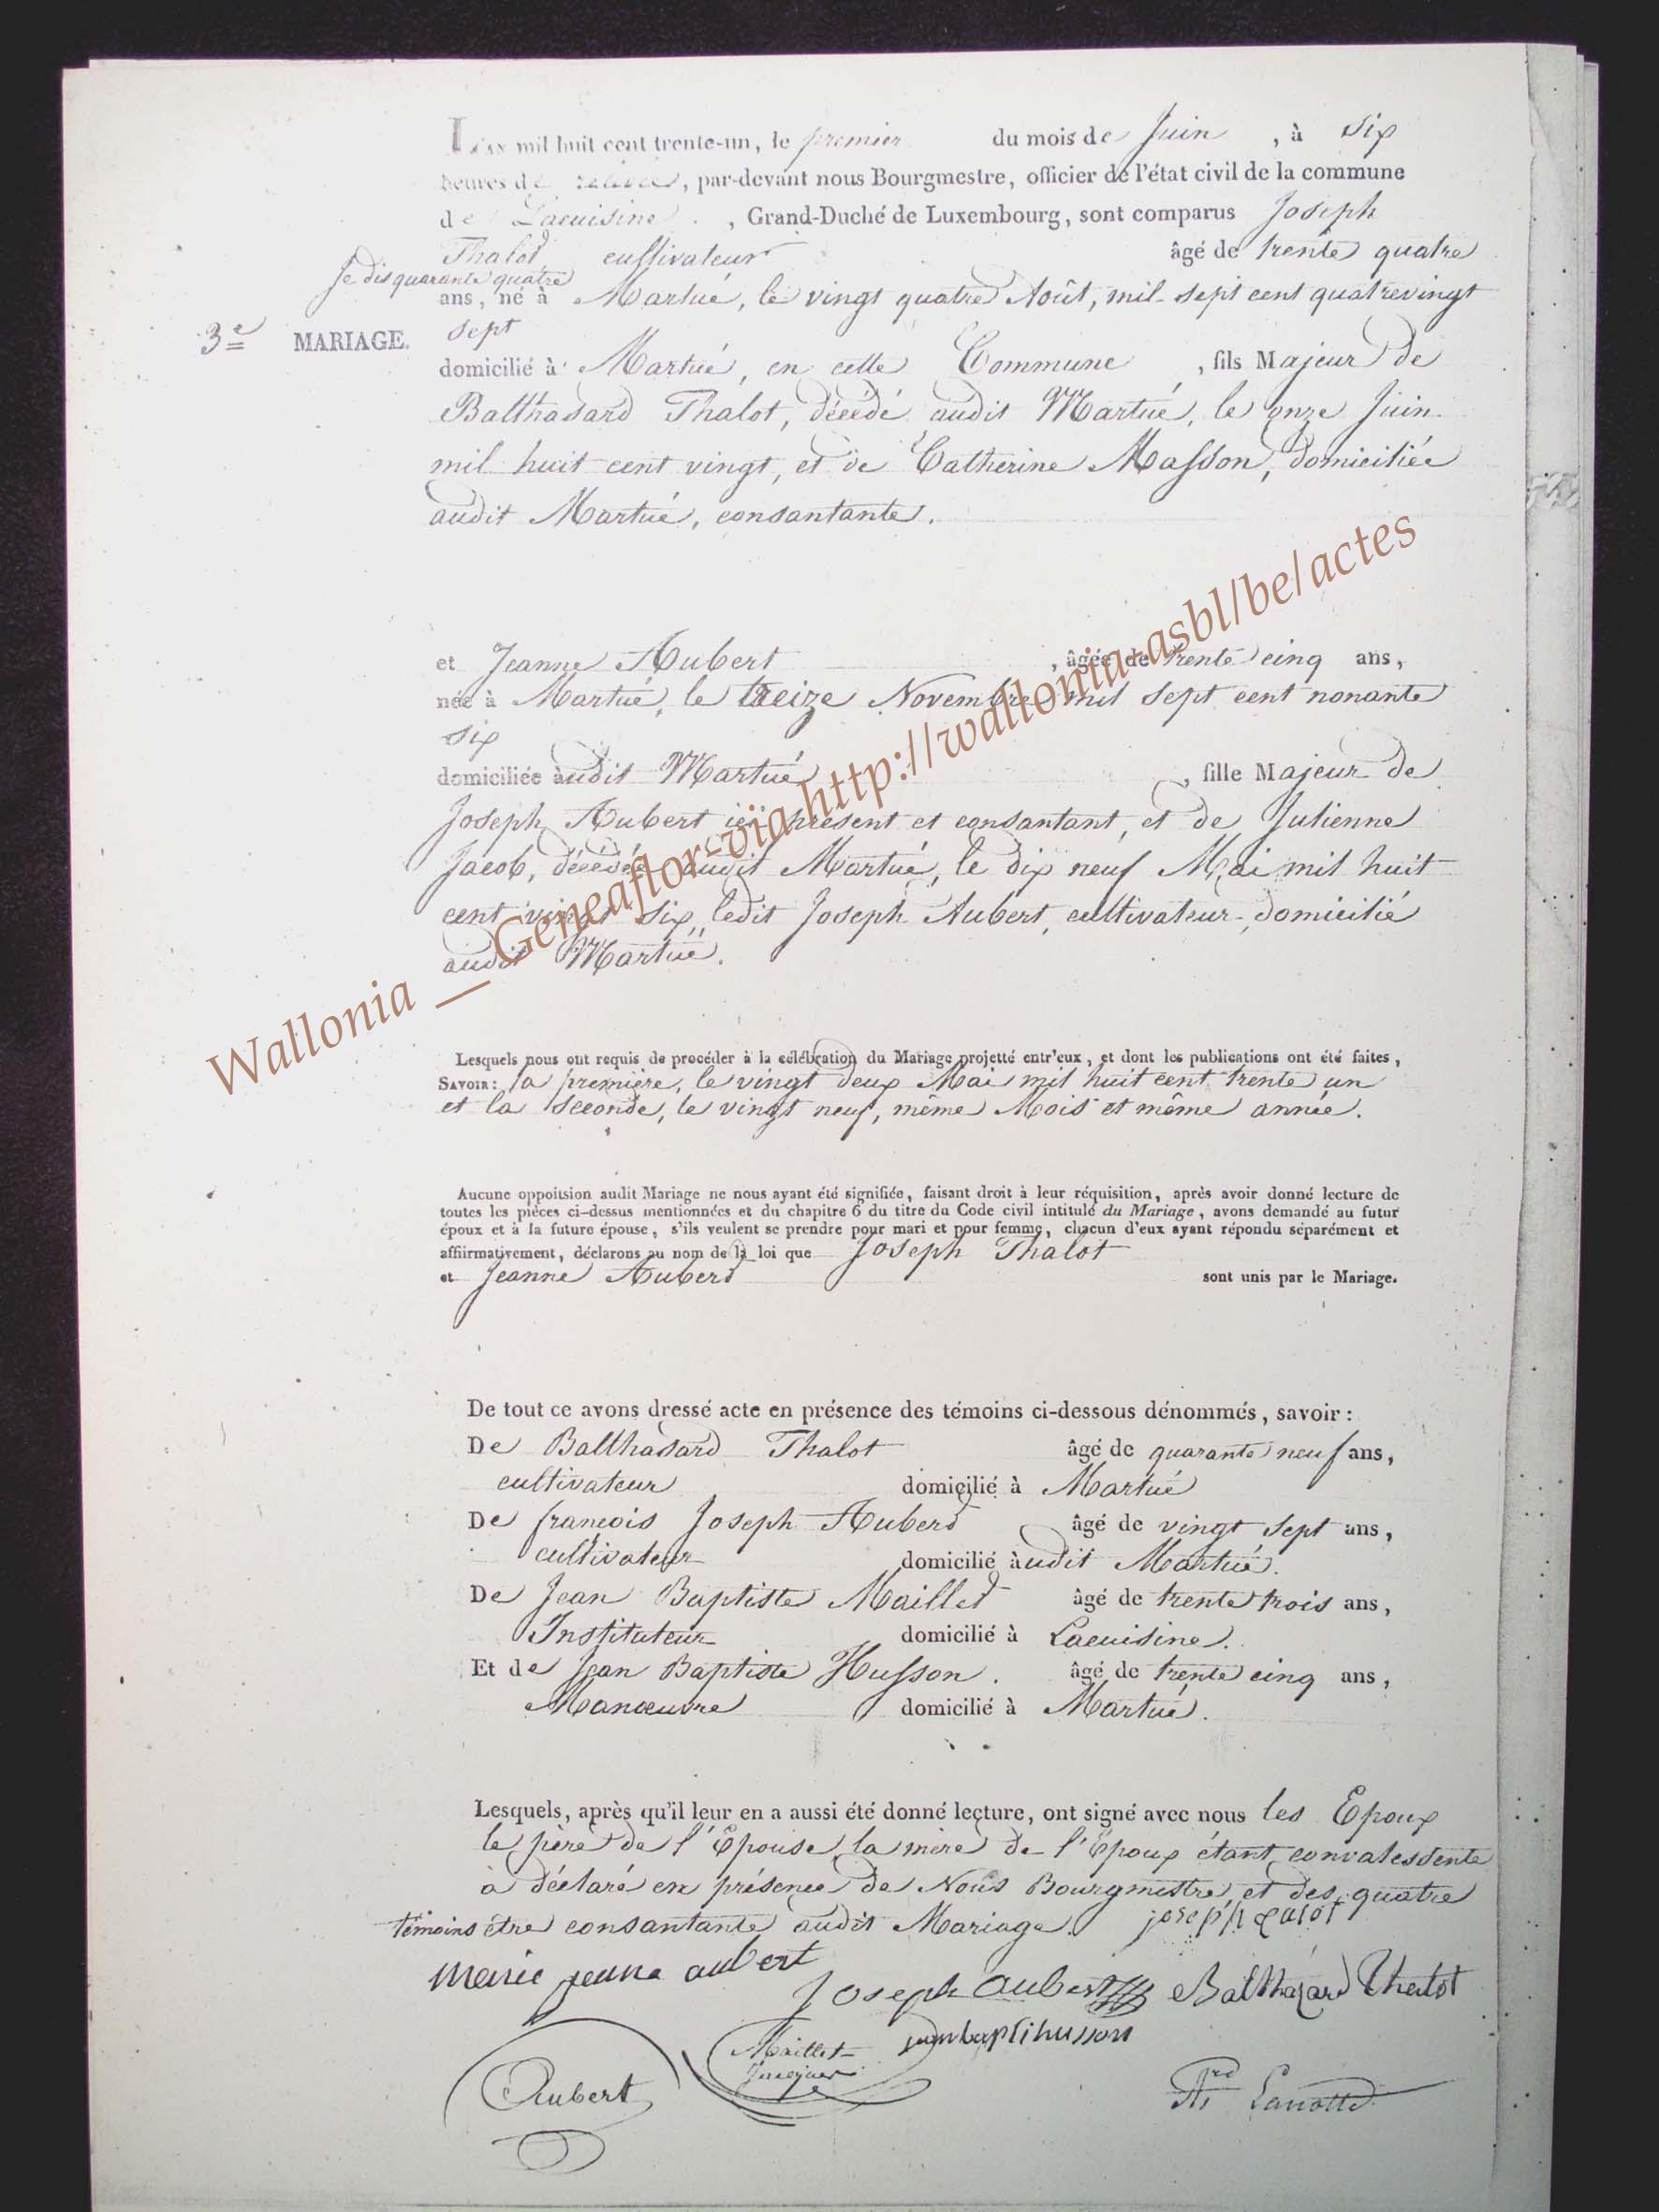 L'an mil huit cent trente-un, le premier du mois de Juin, à Six
heures de relevée, par-devant nous Bourgmestre, officier de l'état civil de la commune
de Lacuisine, Grand-Duché de Luxembourg, sont comparus Joseph
Thalot cultivateur âgé de trente quatre
Je dis quarante quatre
ans, né à Martué, le vingt quatre Août, mil sept cent quatrevingt
3e MARIAGE. sept
domicilié à Martué, en cette Commune, fils Majeur de
Balthasard Thalot, décédé audit Martué, le onze Juin
mil huit cent vingt, et de Catherine Masson, domiciliée
audit Martué, consantante.
et Jeanne Aubert, âgée de trente cinq ans,
née à Martué, le treize Novembre mil sept cent nonante
six
domiciliée audit Martué, fille Majeur de
Joseph Aubert ici présent et consantant, et de Julienne
Jacob, décédée audit Martué, le dix neuf Mai mil huit
cent vingt six, ledit Joseph Aubert, cultivateur, domicilié
audit Martué.
Wallonia __ Geneaflor-via-http://wallonia-asbl/be/actes
Lesquels nous ont requis de procéder à la célébration du Mariage projetté entr'eux, et dont les publications ont été faites,
SAVOIR: la première, le vingt deux Mai mil huit cent trente un
et la seconde, le vingt neuf, même Mois et même année.
Aucune oppoitsion audit Mariage ne nous ayant été signifiée, faisant droit à leur réquisition, après avoir donné lecture de
toutes les pièces ci-dessus mentionnées et du chapitre 6 du titre du Code civil intitulé du Mariage, avons demandé au futur
époux et à la future épouse, s'ils veulent se prendre pour mari et pour femme, chacun d'eux ayant répondu séparément et
affiirmativement, déclarons au nom de la loi que Joseph Thalot
et Jeanne Aubert sont unis par le Mariage.
De tout ce avons dressé acte en présence des témoins ci-dessous dénommés, savoir:
De Balthasard Thalot âgé de quarante neuf ans,
cultivateur domicilié à Martué
De francois Joseph Aubert âgé de vingt sept ans,
cultivateur domicilié audit Martué.
De Jean Baptiste Maillet âgé de trente trois ans,
Instituteur domicilié à Lacuisine.
Et de Jean Baptiste Husson. âgé de trente cinq ans,
Manœuvre domicilié à Martué.
Lesquels, après qu'il leur en a aussi été donné lecture, ont signé avec nous les Epoux
le père de l'Epouse, la mère de l'Epoux étant convalessente
à déclaré en présence de Nous Bourgmestre, et des quatre
témoins être consantante audit Mariage. joseph talot
marie jeanne aubert
Joseph Aubert Balthazard Thalot
Maillet jeanbaptihusson
Aubert
Lanotte